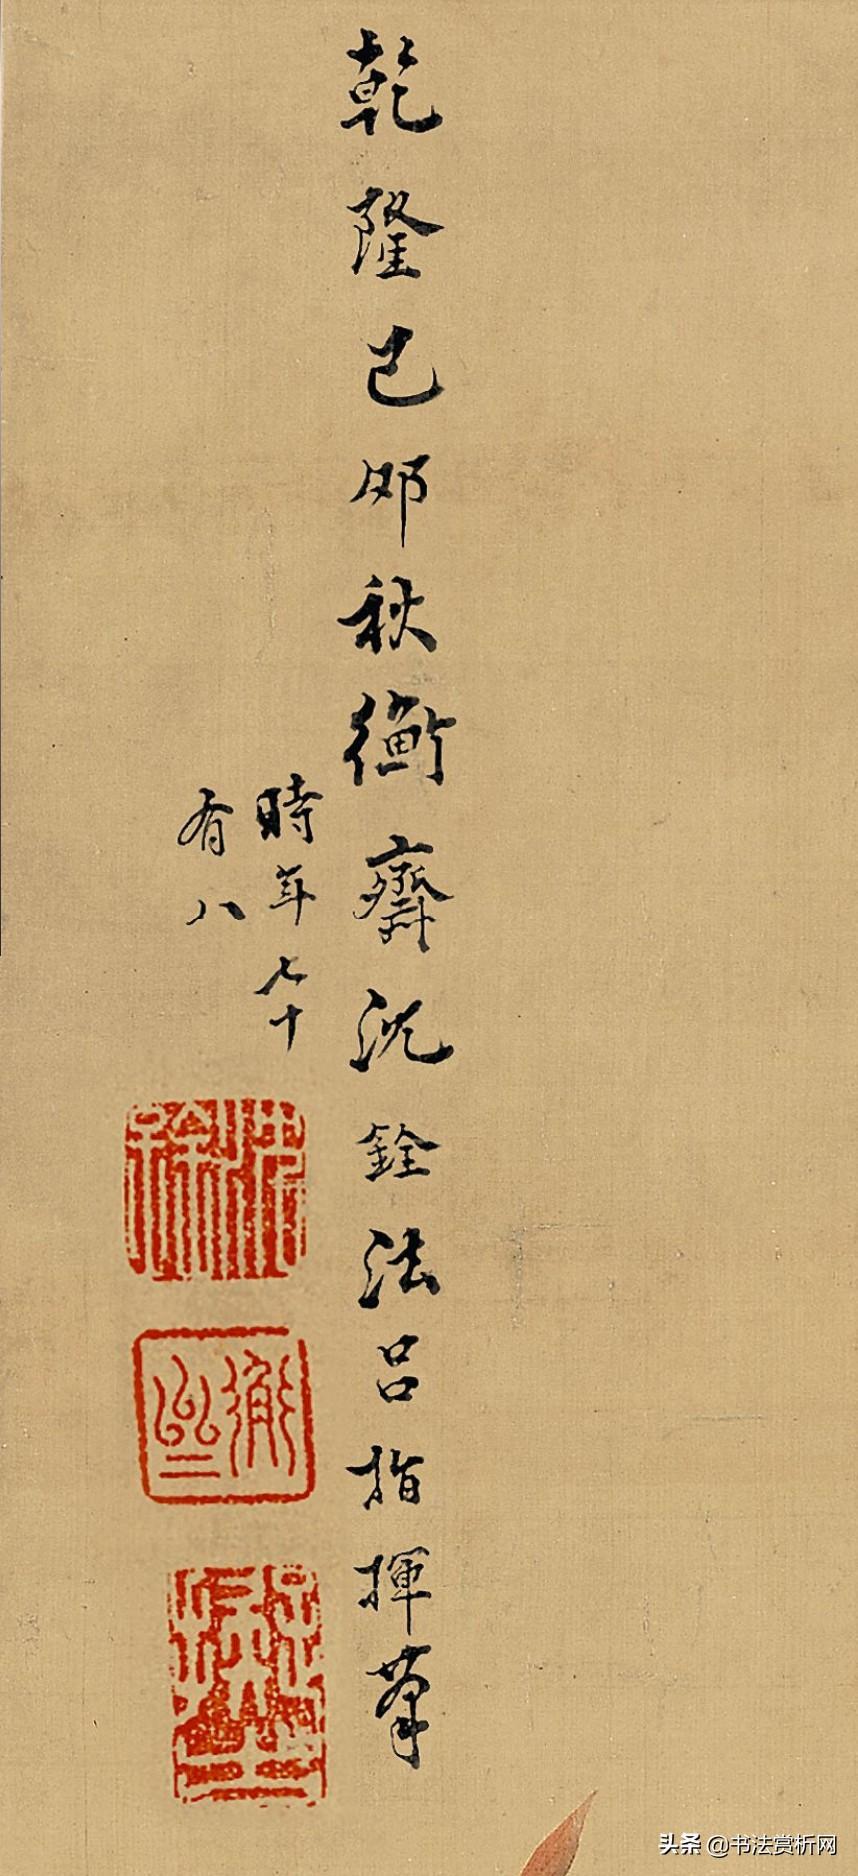 乾隆己卯秋衡齋沈銓法呂指揮筆
時年七十
有八
头条 @书法赏析网